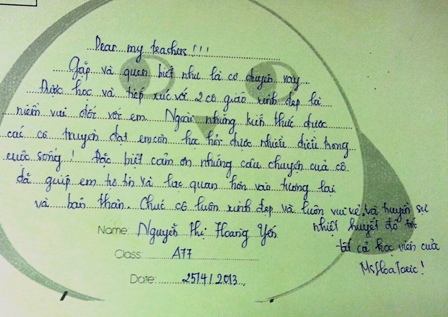 Dear my teachers!!!
Gặp và quen biết như là có duyên vậy
Được học và tiếp xúc với 2 cô giáo xinh đẹp là
niềm vui đối với em. Ngoài những kiến thức được
các cô truyền đạt em còn học hỏi được nhiều điều trong
cuộc sống! Đặc biệt cảm ơn những câu chuyện của cô
đã giúp em tự tin và lạc quan hơn vào tương lai
và bản thân. Chúc cô luôn xinh đẹp và luôn vui vẻ, và truyền sự
nhiệt huyết đó tới
tất cả học viên của
Ms Hoa Toeic!
Name: Nguyễn Thị Hoàng Yến
Class: A77
Date: 25/4/2013